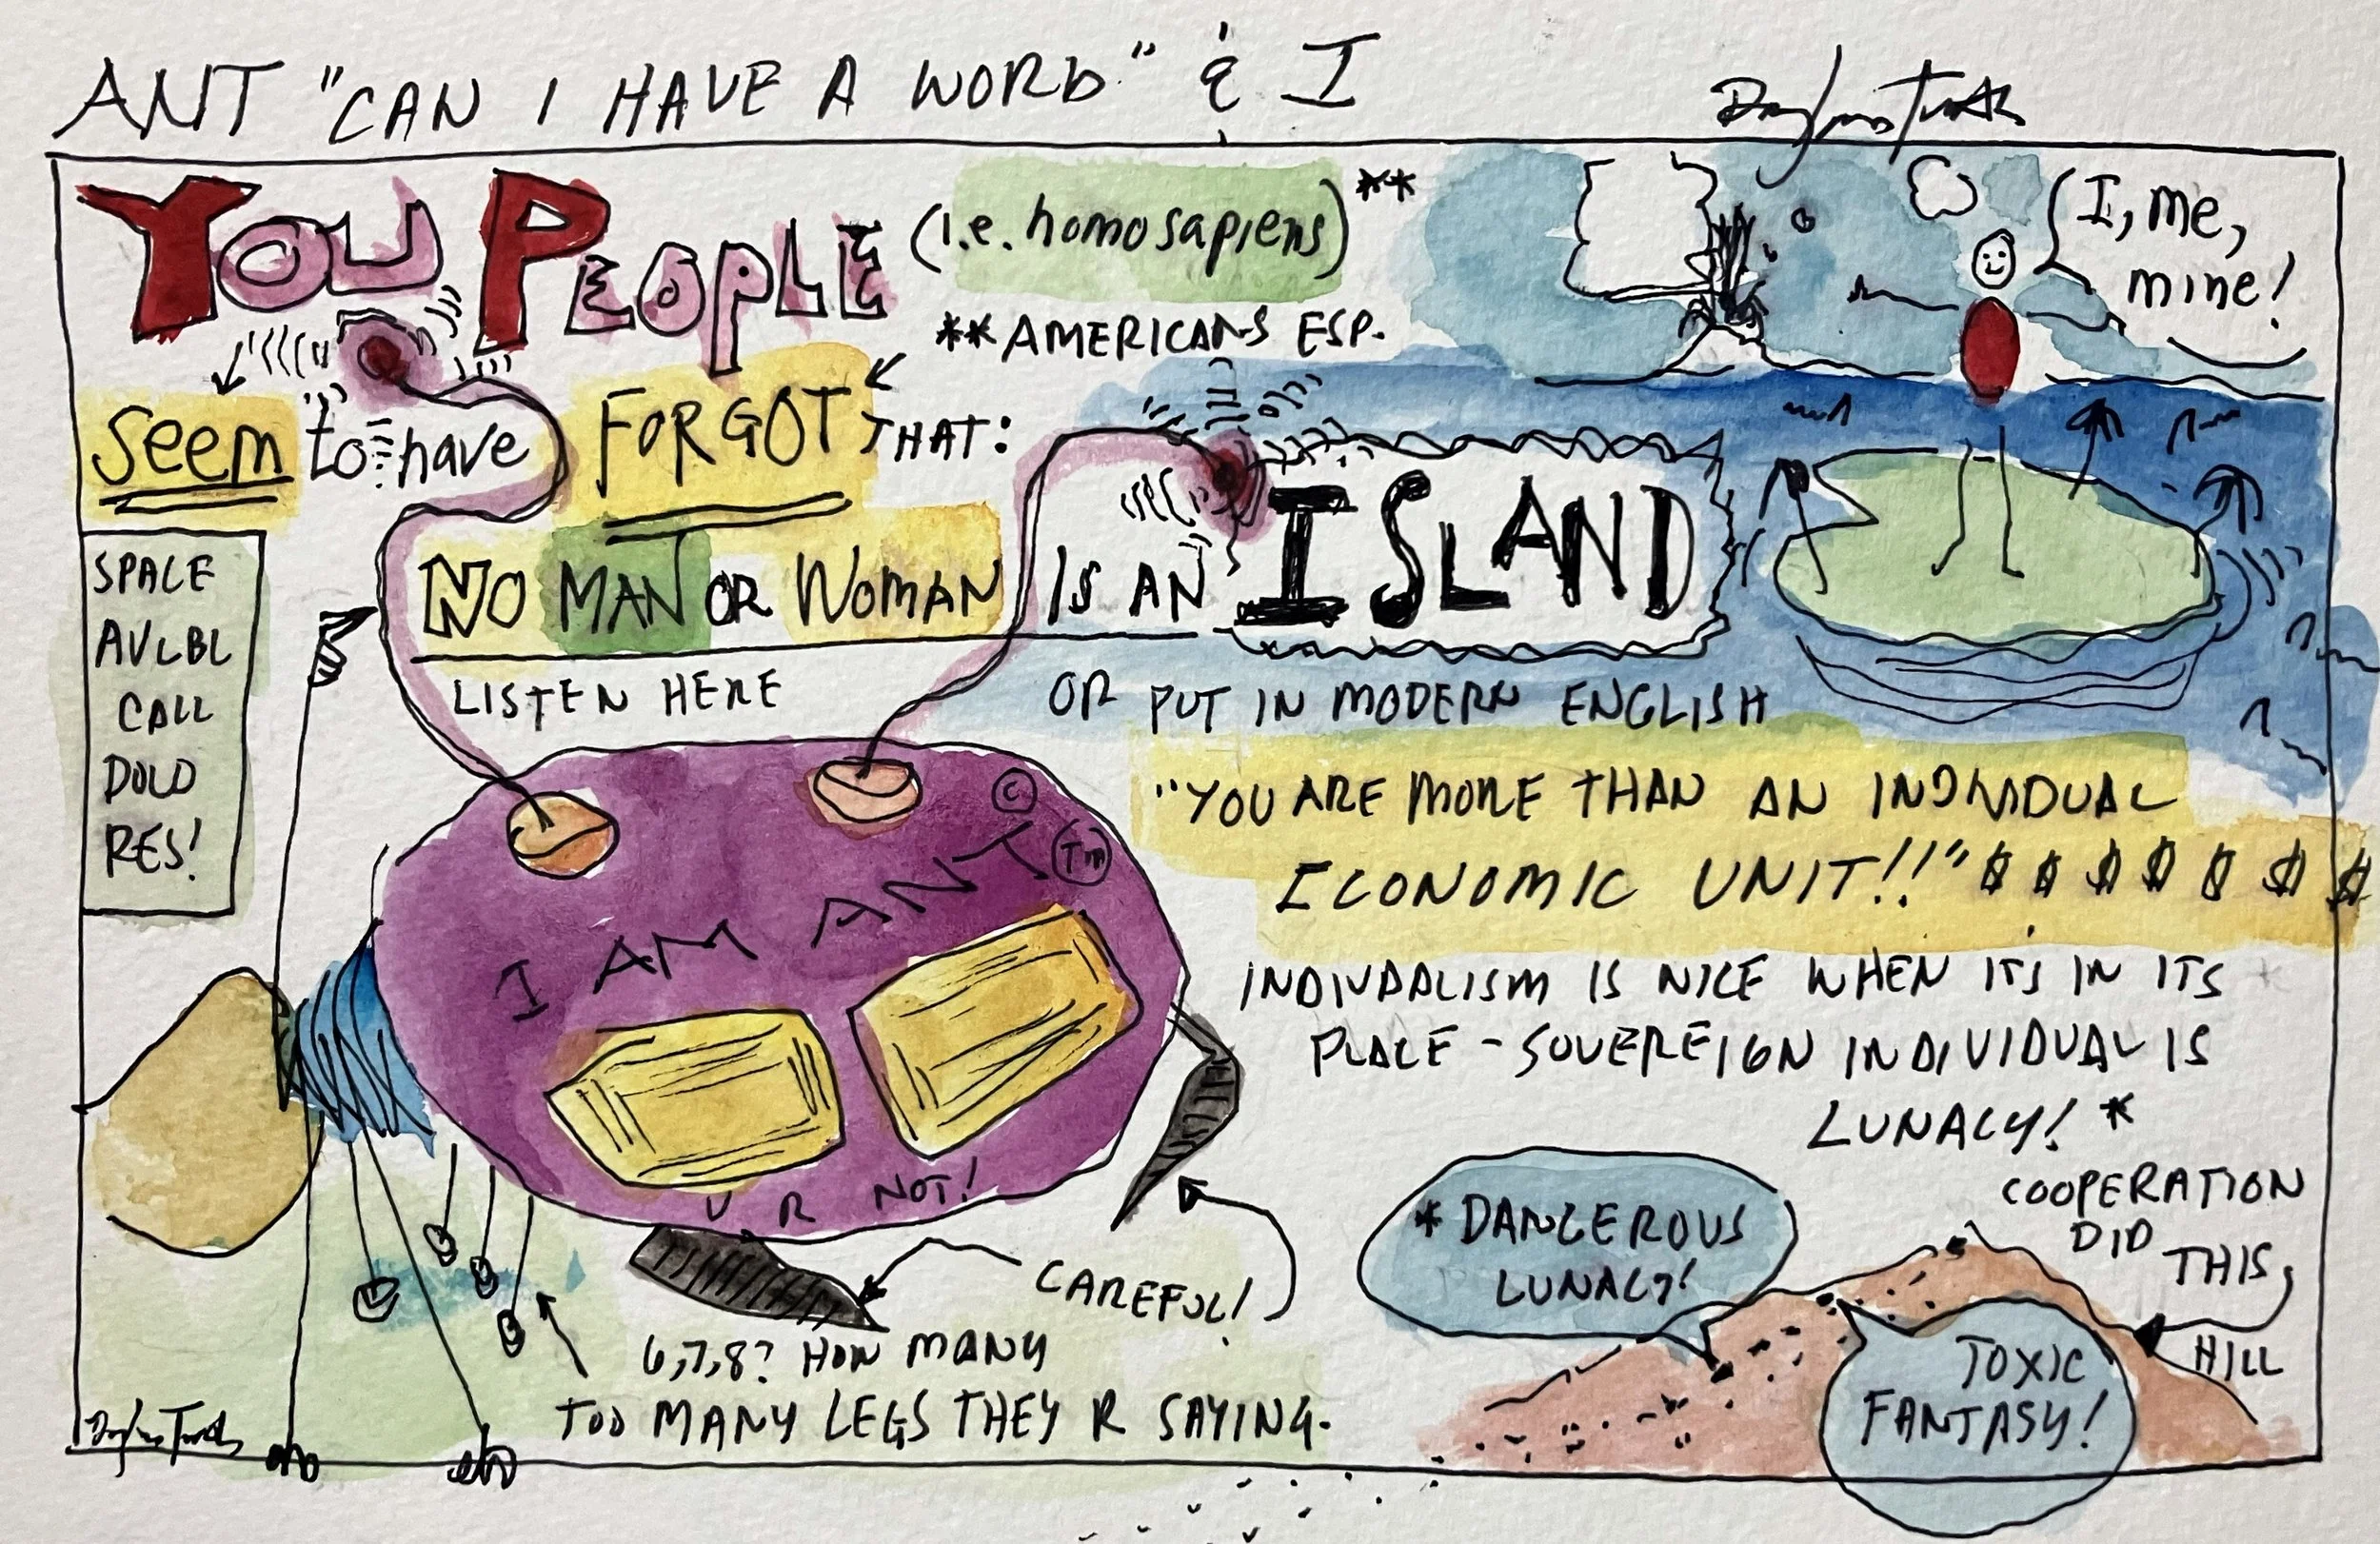 ANT "CAN I HAVE A WORD" & I
YOU PEOPLE (i.e. homosapiens)**
**AMERICANS ESP.
I, me,
mine!
Seem to have FORGOT THAT:
NO MAN OR WOMAN IS AN ISLAND
SPACE
AVLBL
CALL
DOLO
RES!
LISTEN HERE
OR PUT IN MODERN ENGLISH
"YOU ARE MORE THAN AN INDIVIDUAL
ECONOMIC UNIT!!" $ $ $ $ $ $ $
©
I AM ANT TM
U R NOT!
INDIVDALISM IS NICE WHEN ITS IN ITS
PLACE - SOVEREIGN INDIVIDUAL IS
LUNACY! *
COOPERATION
DID
THIS
HILL
* DANGEROUS
LUNACY!
TOXIC
FANTASY!
CAREFUL!
6,7,8? HOW MANY
TOO MANY LEGS THEY R SAYING.